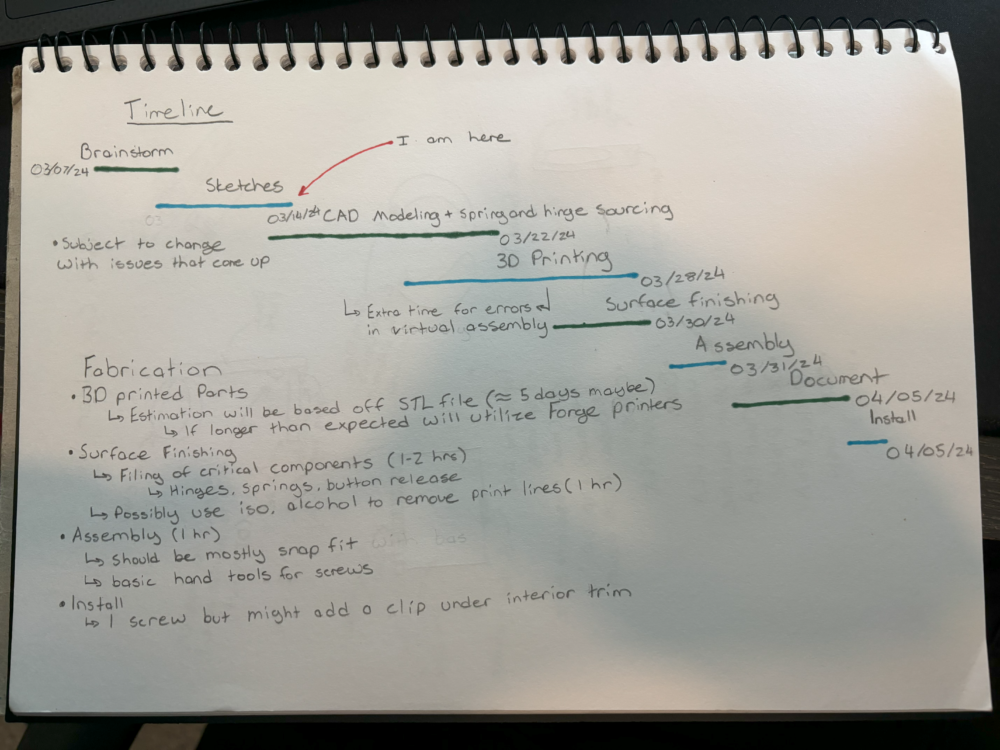 Timeline
I am here
Brainstorm
03/07/24
Sketches
03
03/14/24 CAD Modeling + Spring and hinge sourcing
03/22/24
• Subject to change
with issues that come up
3D Printing
03/28/24
↳ Extra time for errors
in virtual assembly
Surface finishing
03/30/24
Assembly
03/31/24
Document
04/05/24
Install
04/05/24
Fabrication
• 3D printed Parts
↳ Estimation will be based off STL file (≈ 5 days maybe)
↳ If longer than expected will utilize Forge printers
• Surface Finishing
↳ Filing of critical components (1-2 hrs)
↳ Hinges, springs, button release
↳ Possibly use iso. alcohol to remove print lines (1 hr)
• Assembly (1 hr)
↳ Should be mostly snap fit with bas
↳ basic hand tools for screws
• Install
↳ 1 screw but might add a clip under interior trim